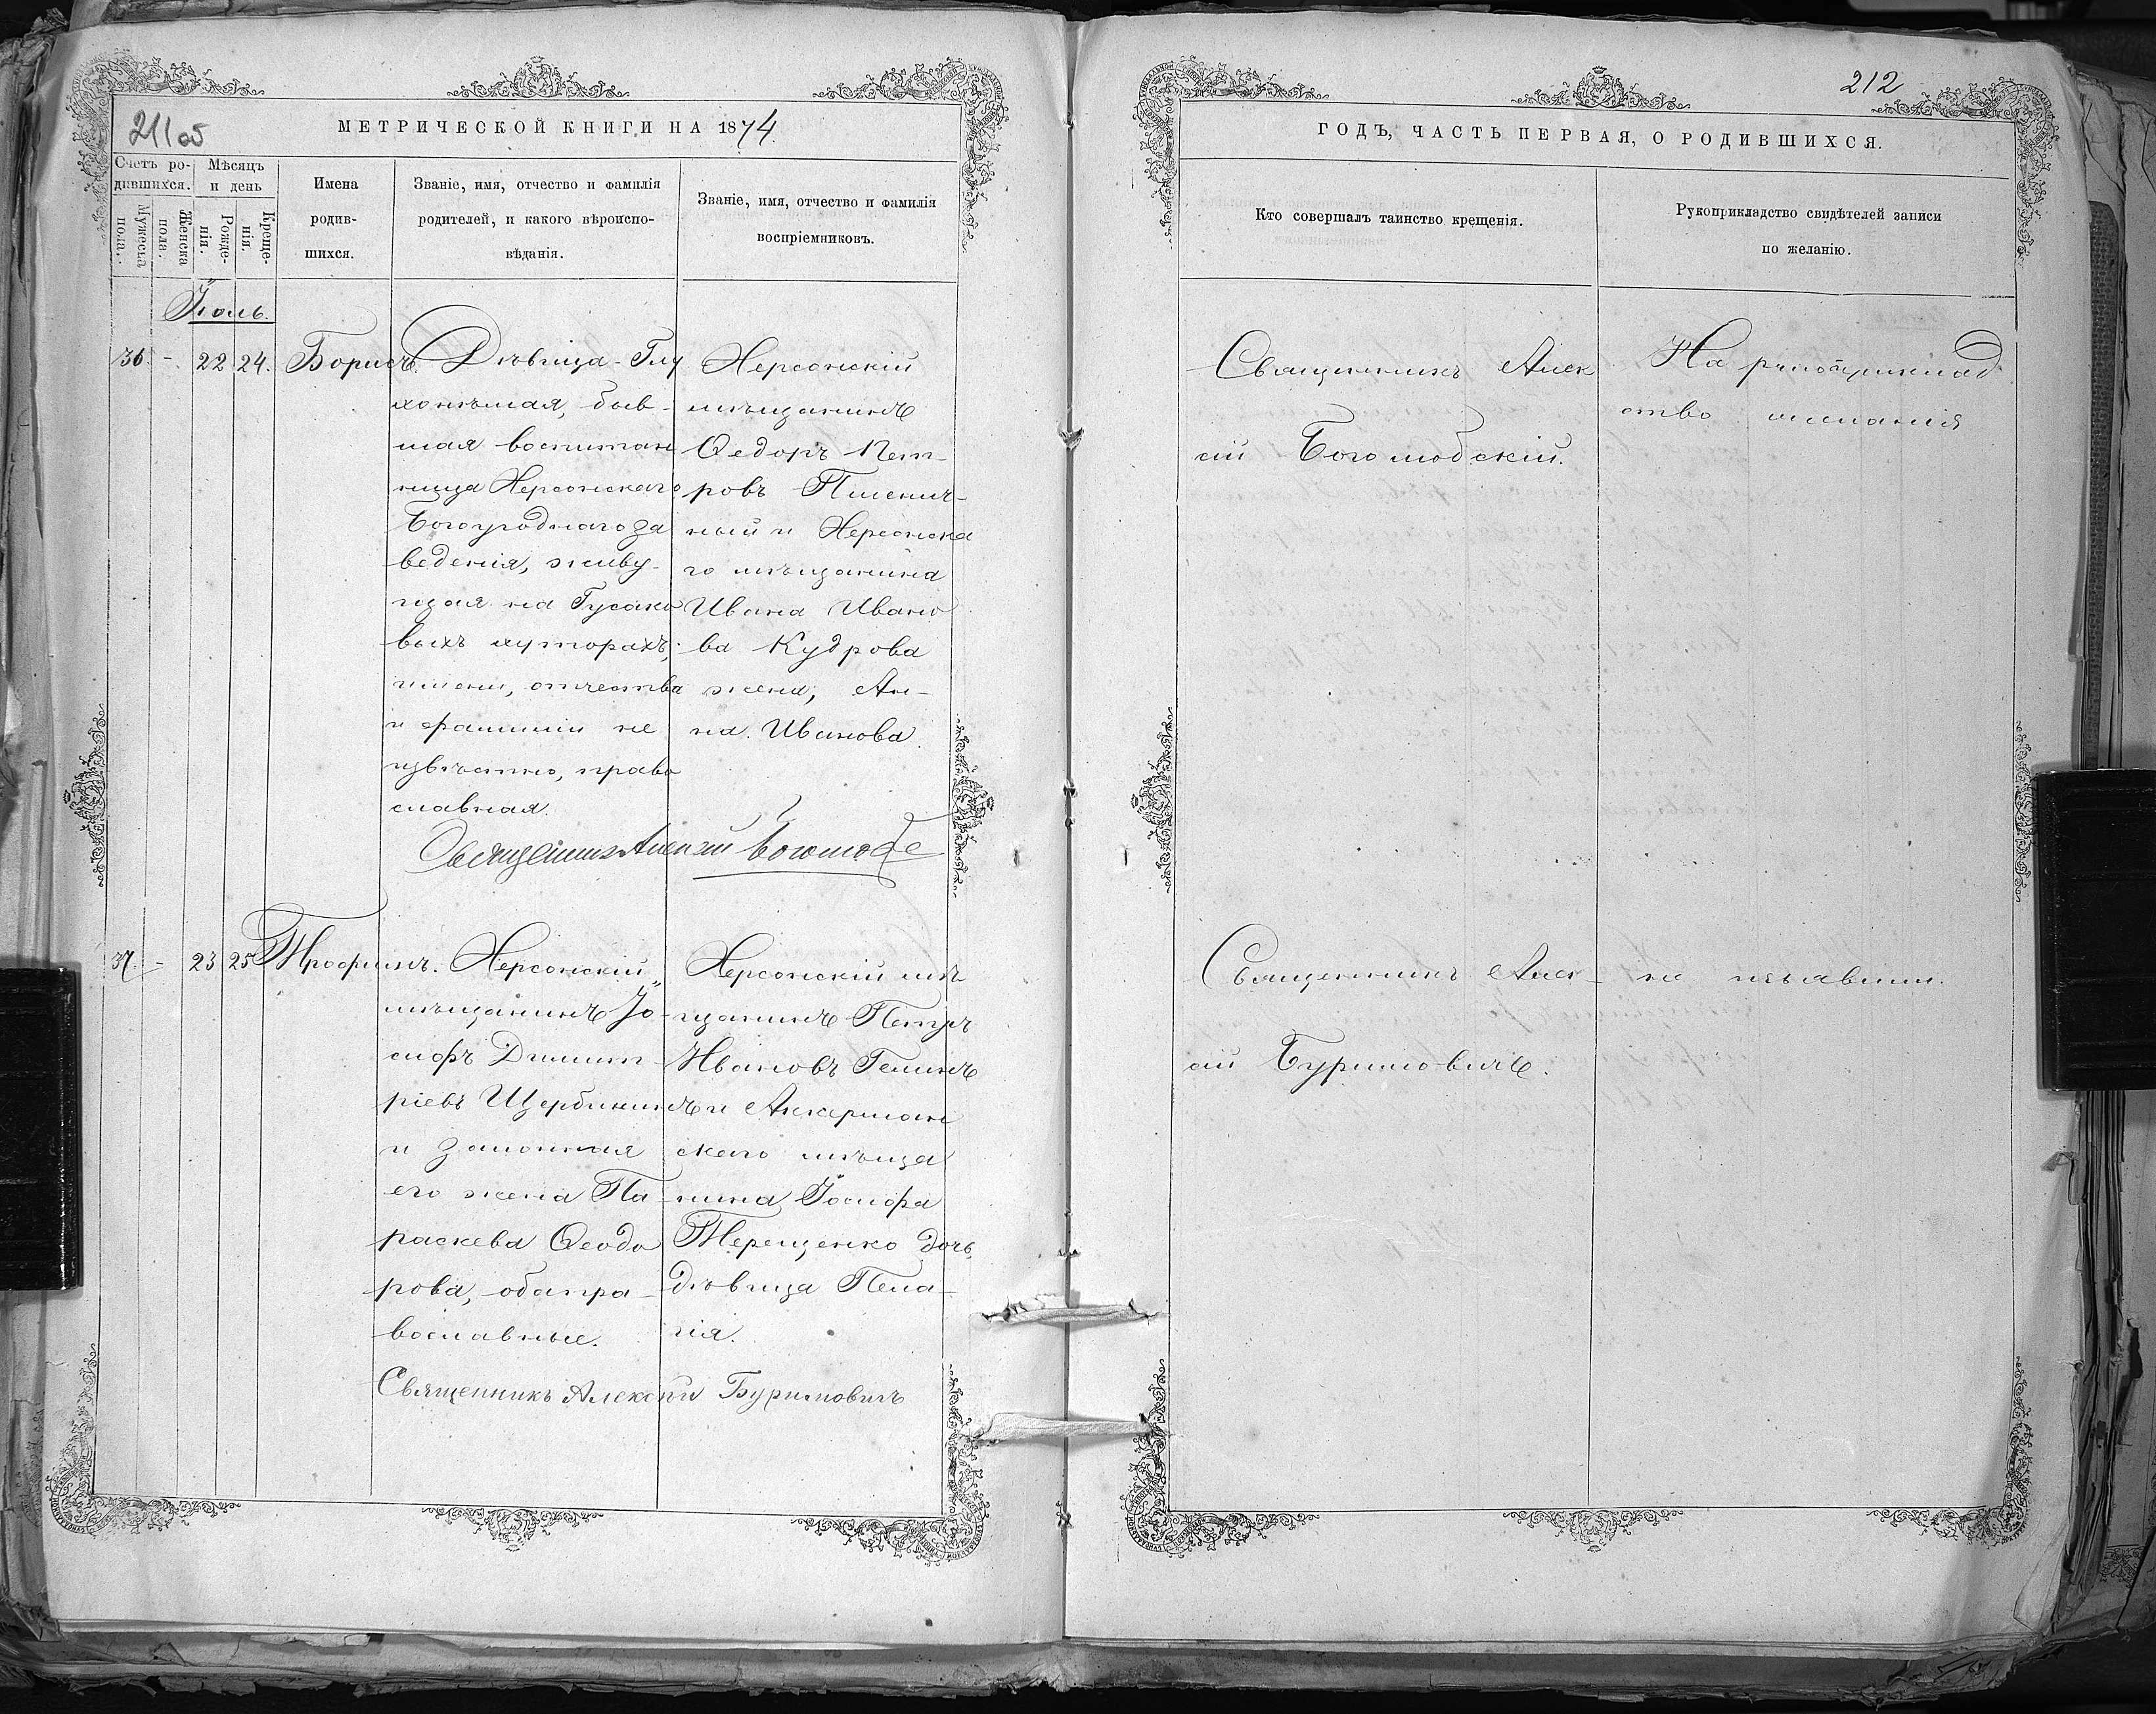 211об
МЕТРИЧЕСКОЙ КНИГИ НА 1874.
Счетъ родившихся.
Мужеска пола.
Женска пола.
Мѣсяцъ и день
Рожденія.
Крещенія.
Имена
родив-
шихся.
Званіе, имя, отчество и фамилія
родителей, и какого вѣроиспо-
вѣданія.
Званіе, имя, отчество и фамилія
воспріемниковъ.
Іюль.
36. - 22 24. Борисъ.
Дѣвица-Глу
хонѣмая, быв-
шая воспитан
ница Херсонскаго
Богоугоднаго за
веденія, живу-
щая на Гусако
выхъ хуторахъ,
имени, отчества
и фамиліи не
извѣстно, право
славная.
Херсонскій
мѣщанинъ
Ѳедоръ Пет-
ровъ Пшенич-
ный и Херсонска
го мѣщанина
Ивана Ивано
ва Кудрова
жена, Ан-
на Иванова.
Священникъ Алексій Боголюбс
37. - 23 25 Трофимъ.
Херсонскій
мѣщанинъ Іо-
сифъ Димит-
ріевъ Щербининъ
и законная
его жена Па-
раскева Ѳеодо
рова, оба пра-
вославные.
Херсонскій мѣ
щанинъ Петръ
Ивановъ
и Аккерман
скаго мѣща
нина Іосифа
Терещенко дочь,
дѣвица Пела-
гія.
Священникъ Алексій Буримовичъ
212
ГОДЪ, ЧАСТЬ ПЕРВАЯ, О РОДИВШИХСЯ.
Кто совершалъ таинство крещенія.
Рукоприкладство свидѣтелей записи
по желанію.
Священникъ Алек
сій Боголюбскій.
На рукоприклад
ство желанія
Священникъ Алек-
сій Буримовичъ.
не изъявили.